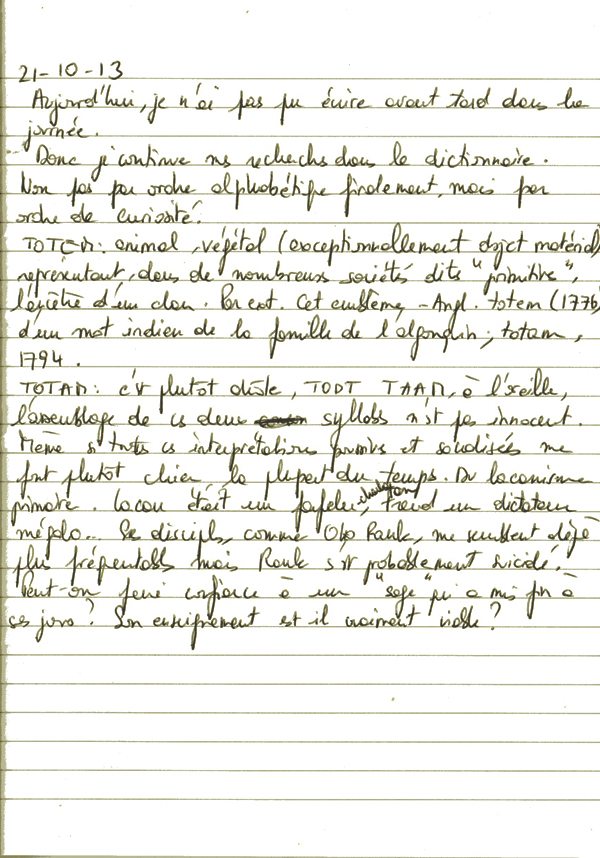 21-10-13
Aujourd'hui, je n'ai pas pu écrire avant tard dans la
journée.
Donc je continue mes recherches dans le dictionnaire.
Non pas par ordre alphabétique finalement, mais par
ordre de curiosité.
TOTEM: animal, végétal (exceptionnellement objet matériel)
représentant, dans de nombreuses sociétés dites "primitive",
l'ancêtre d'un clan. Par ext. Cet emblème, - Angl. totem (1776)
d'un mot indien de la famille de l'algonquin; totam,
1794.
TOTAM: c'est plutôt drôle, TODT TAAM, à l'oreille,
l'assemblage de ces deux syllabes n'est pas innocent.
Même si toutes ces interprétations et me
font plutôt chier, la plupart du temps. Du lacanisme
primaire. Lacan était un farfelu, charlatan, Freud un dictateur
mégalo... Ses disciples, comme Otto Rank, me semblent déjà
plus fréquentables mais Rank s'est probablement suicidé.
Peut-on faire confiance à un "sage" qui a mis fin à
ses jours? Son enseignement est il vraiment viable?